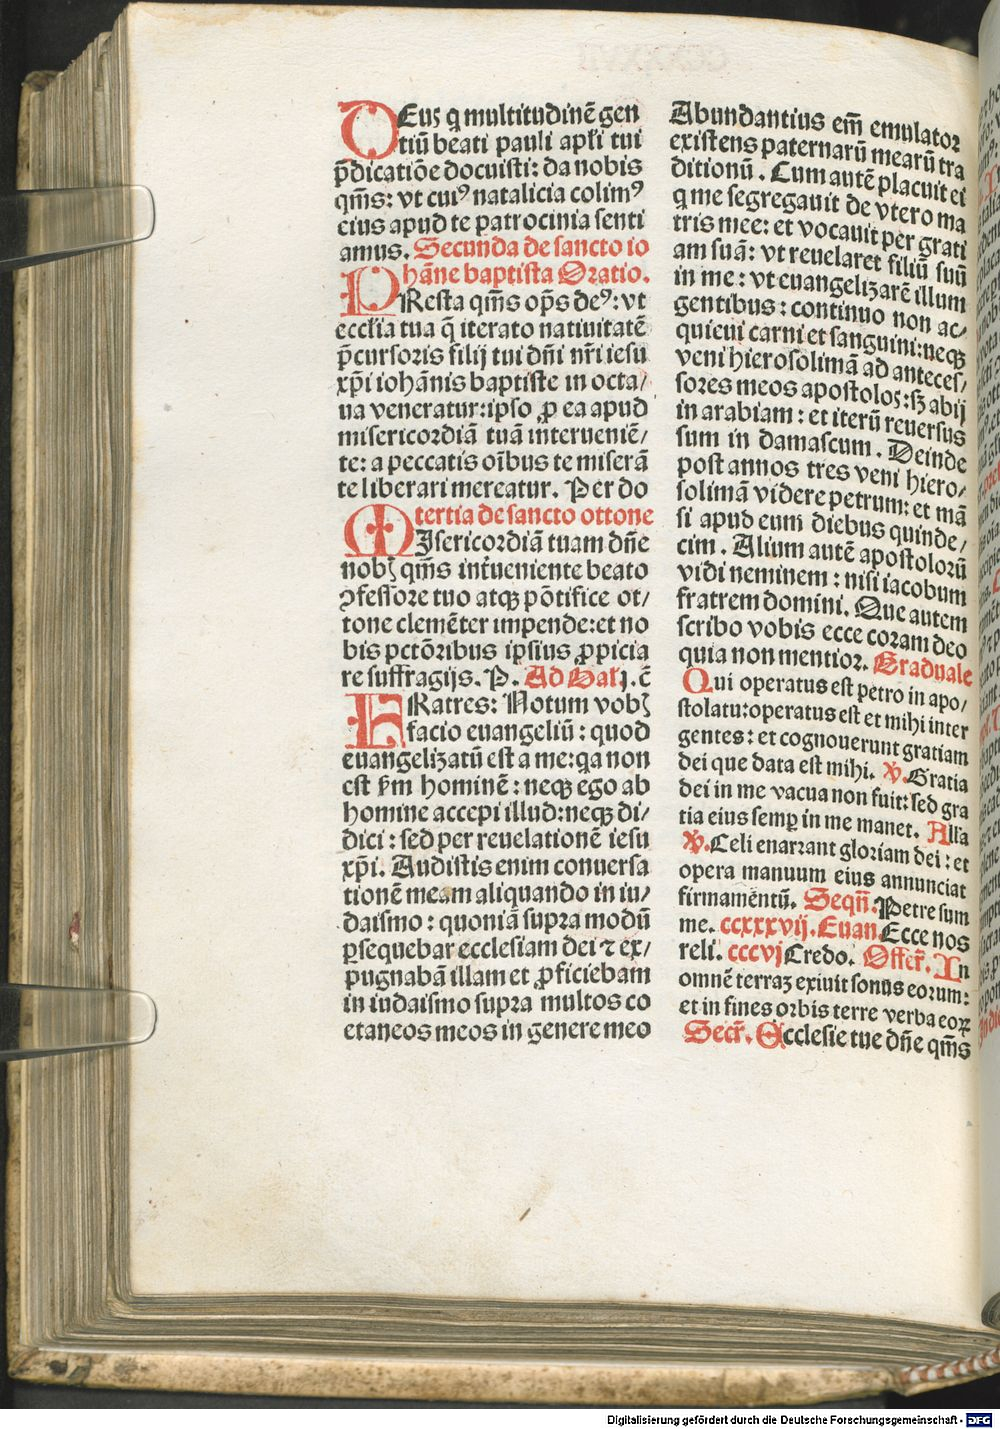 DEus q̄ multitudinē gen
tiū beati pauli apl̄i tui
p̄dicatiōe docuisti: da nobis
qm̄s: vt cuiꝰ natalicia colimꝰ
eius apud te patrocinia senti
amus. Secunda de sancto io
hāne baptista Oratio.
PResta qm̄s op̄s deꝰ: vt
eccl̄ia tua q̄ iterato natiuitatē
p̄cursoris filij tui dn̄i nr̄i iesu
xp̄i iohānis baptiste in octa/
ua veneratur: ipso ꝓ ea apud
misericordiā tuā interueniē/
te: a peccatis oībus te miserā
te liberari mereatur. Per do
tertia de sancto ottone
MIsericordiā tuam dn̄e
nobꝫ qm̄s int̄ueniente beato
ꝯfessore tuo atqꝫ pōtifice ot/
tone clemēter impende: et no
bis pctōribus ipsius ꝓpicia
re suffragijs. P. Ad Gal. j. c̄
FRatres: Notum vobꝫ
facio euangeliū: quod
euangelizatū est a me: qa non
est s̄m hominē: neqꝫ ego ab
homine accepi illud: neqꝫ di/
dici: sed per reuelationē iesu
xp̄i. Audistis enim conuersa
tionē meam aliquando in iu/
daismo: quoniā supra modū
ꝑsequebar ecclesiam dei ⁊ ex/
pugnabā illam et ꝓficiebam
in iudaismo supra multos co
etaneos meos in genere meo
Abundantius em̄ emulator
existens paternarū mearū tra
ditionū. Cum autē placuit ei
q me segregauit de vtero ma
tris mee: et vocauit per grati
am suā: vt reuelaret filiū suū
in me: vt euangelizarē illum
gentibus: continuo non ac/
quieui carni et sanguini: neqꝫ
veni hierosolimā ad anteces/
sores meos apostolos: sꝫ abij
in arabiam: et iterū reuersus
sum in damascum. Deinde
post annos tres veni hiero/
solimā videre petrum: et mā
si apud eum diebus quinde/
cim. Alium autē apostolorū
vidi neminem: nisi iacobum
fratrem domini. Que autem
scribo vobis ecce coram deo
quia non mentior. Graduale
Qui operatus est petro in apo/
stolatu: operatus est et mihi inter
gentes: et cognouerunt gratiam
dei que data est mihi. ℣. Gratia
dei in me vacua non fuit: sed gra
tia eius semꝑ in me manet. All'a
℣. Celi enarrant gloriam dei: et
opera manuum eius annunciat
firmamentū. Seqn̄. Petre sum
me. ccxxxvij. Euan Ecce nos
reli. cccvj Credo. Offer̄. In
omnē terraꝫ exiuit sonus eorum:
et in fines orbis terre verba eoꝝ
Secr̄. Ecclesie tue dn̄e qm̄s
Digitalisierung gefördert durch die Deutsche Forschungsgemeinschaft - DFG